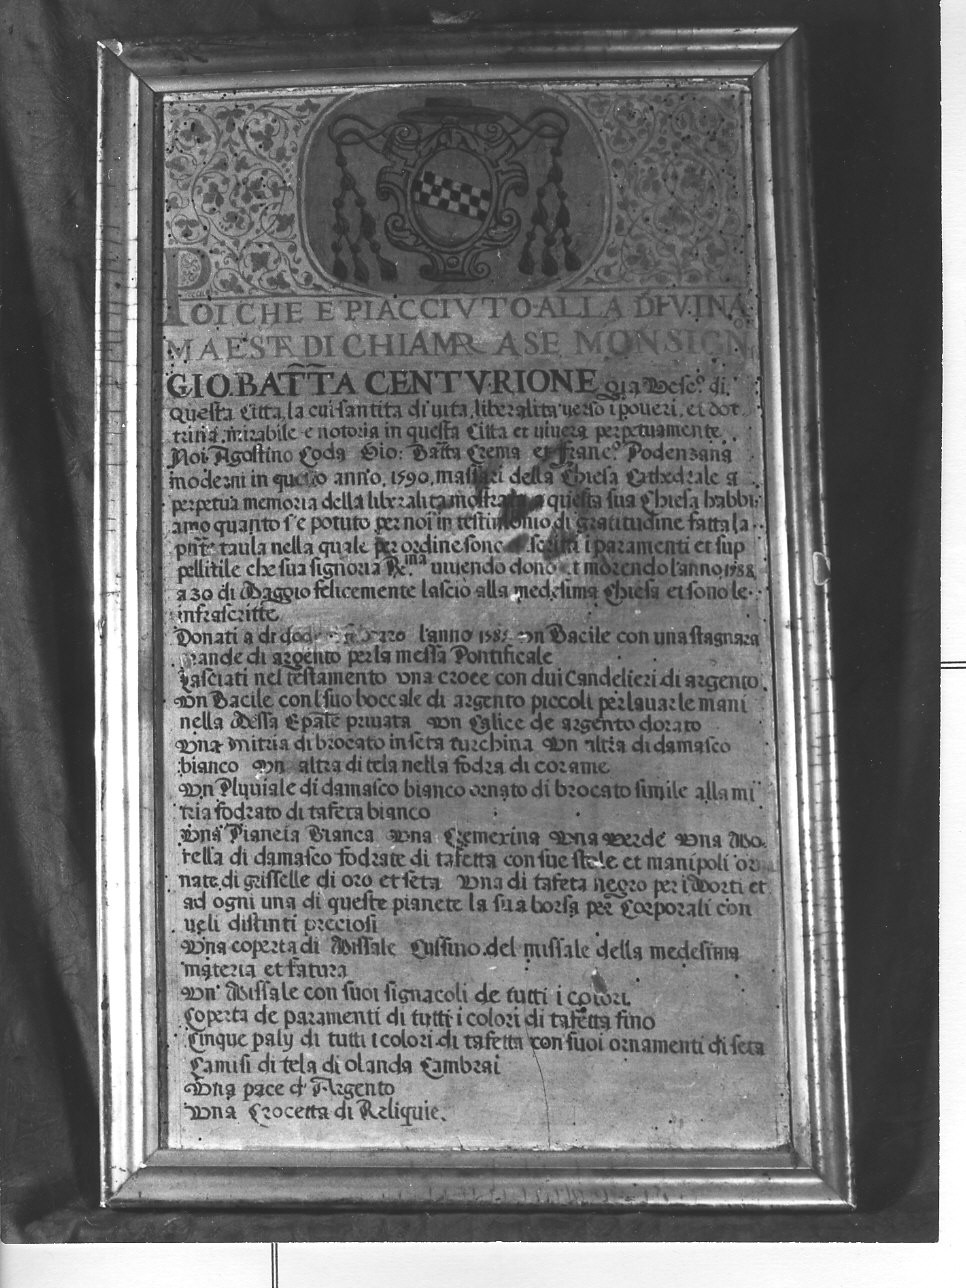 POI CHE E PIACCIVTO ALLA DIVINA
MAESTA DI CHIAMARE A SE MONSIGN
GIO. BATTA CENTVRIONE già Vesc.º di
questa Citta, la cui santita di uita, liberalita uerso i poueri, et dot
trina mirabile e notoria in questa Citta et uiuera perpetuamente.
Noi Agostino Coda Gio: Batta Crema et Franc.º Podenzana
moderni in questo anno, 1590, massari della Chiesa Cathedrale a
perpetua memoria della liberalita mostrata a questa sua Chiesa habbi
amo quanto s'e potuto per noi in testimonio di gratitudine fatta la
pnte taula nella quale per ordine sono scritti i paramenti et sup
pellitile che sua signoria R.ma uiuendo dono et morendo l'anno 1588
a 30 di Maggio felicemente lascio alla medesima Chiesa et sono le
infrascritte
Donati a di l'anno 158 vn Bacile con una stagnara
grande di argento per la messa Pontificale
Lasciati nel testamento vna croce con dui Candelieri di argento
vn Bacile con l suo boccale di argento piccoli per lauar le mani
nella Messa Epale priuata vn Calice de argento dorato
vna mitria di brocato in seta turchina vn altra di damasco
bianco vn altra di tela nella fodra di corame
vn Pluuiale di damasco bianco ornato di brocato simile alla mi
tria fodrato di tafeta bianco
vna Pianeta Bianca vna Cremexina vna verde vna Mo
rella di damasco fodrate di tafetta con sue stole et manipoli or
nate di grisselle di oro et seta vna di tafeta negro per i Morti et
ad ogni una di queste pianete la sua borsa per Corporali con
ueli distinti preciosi
vna coperta di Missale Cussino del missale della medesima
materia et fatura
vn Missale con suoi signacoli de tutti i colori.
Coperta de paramenti di tutti i colori di tafetta fino
Cinque paly di tutti i colori di tafetta con suoi ornamenti di seta
Camisi di tela di olanda Cambrai
vna pace d'Argento
vna Crocetta di Reliquie.